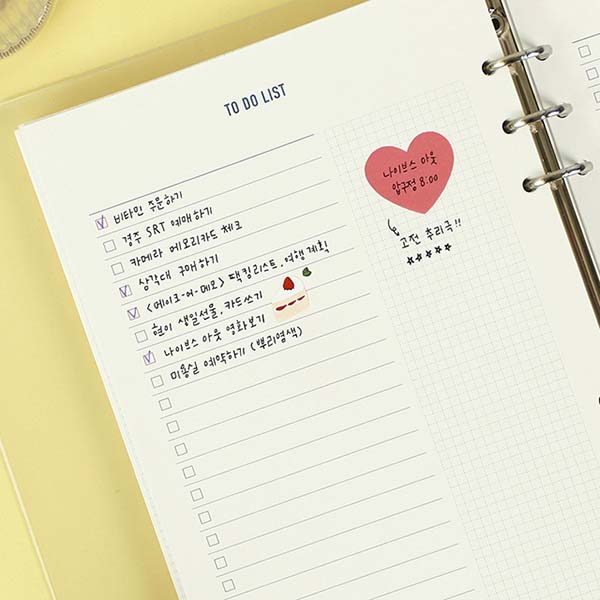 TO DO LIST
비타민 주문하기
경주 SRT 예매하기
카메라 메모리카드 체크
삼각대 구매하기
<메이크-어-메모> 팩킹리스트, 여행계획
현이 생일선물, 카드쓰기
나이브스 아웃 영화보기
미용실 예약하기 (뿌리염색)
나이브스 아웃
압구정 8:00
고전 추리극!!